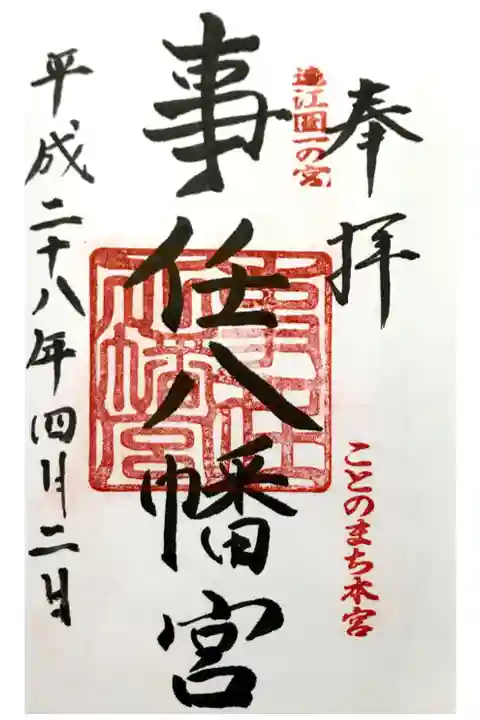 奉拝
遠江国一の宮
ことのまち本宮
事任八幡宮
平成二十八年四月二日